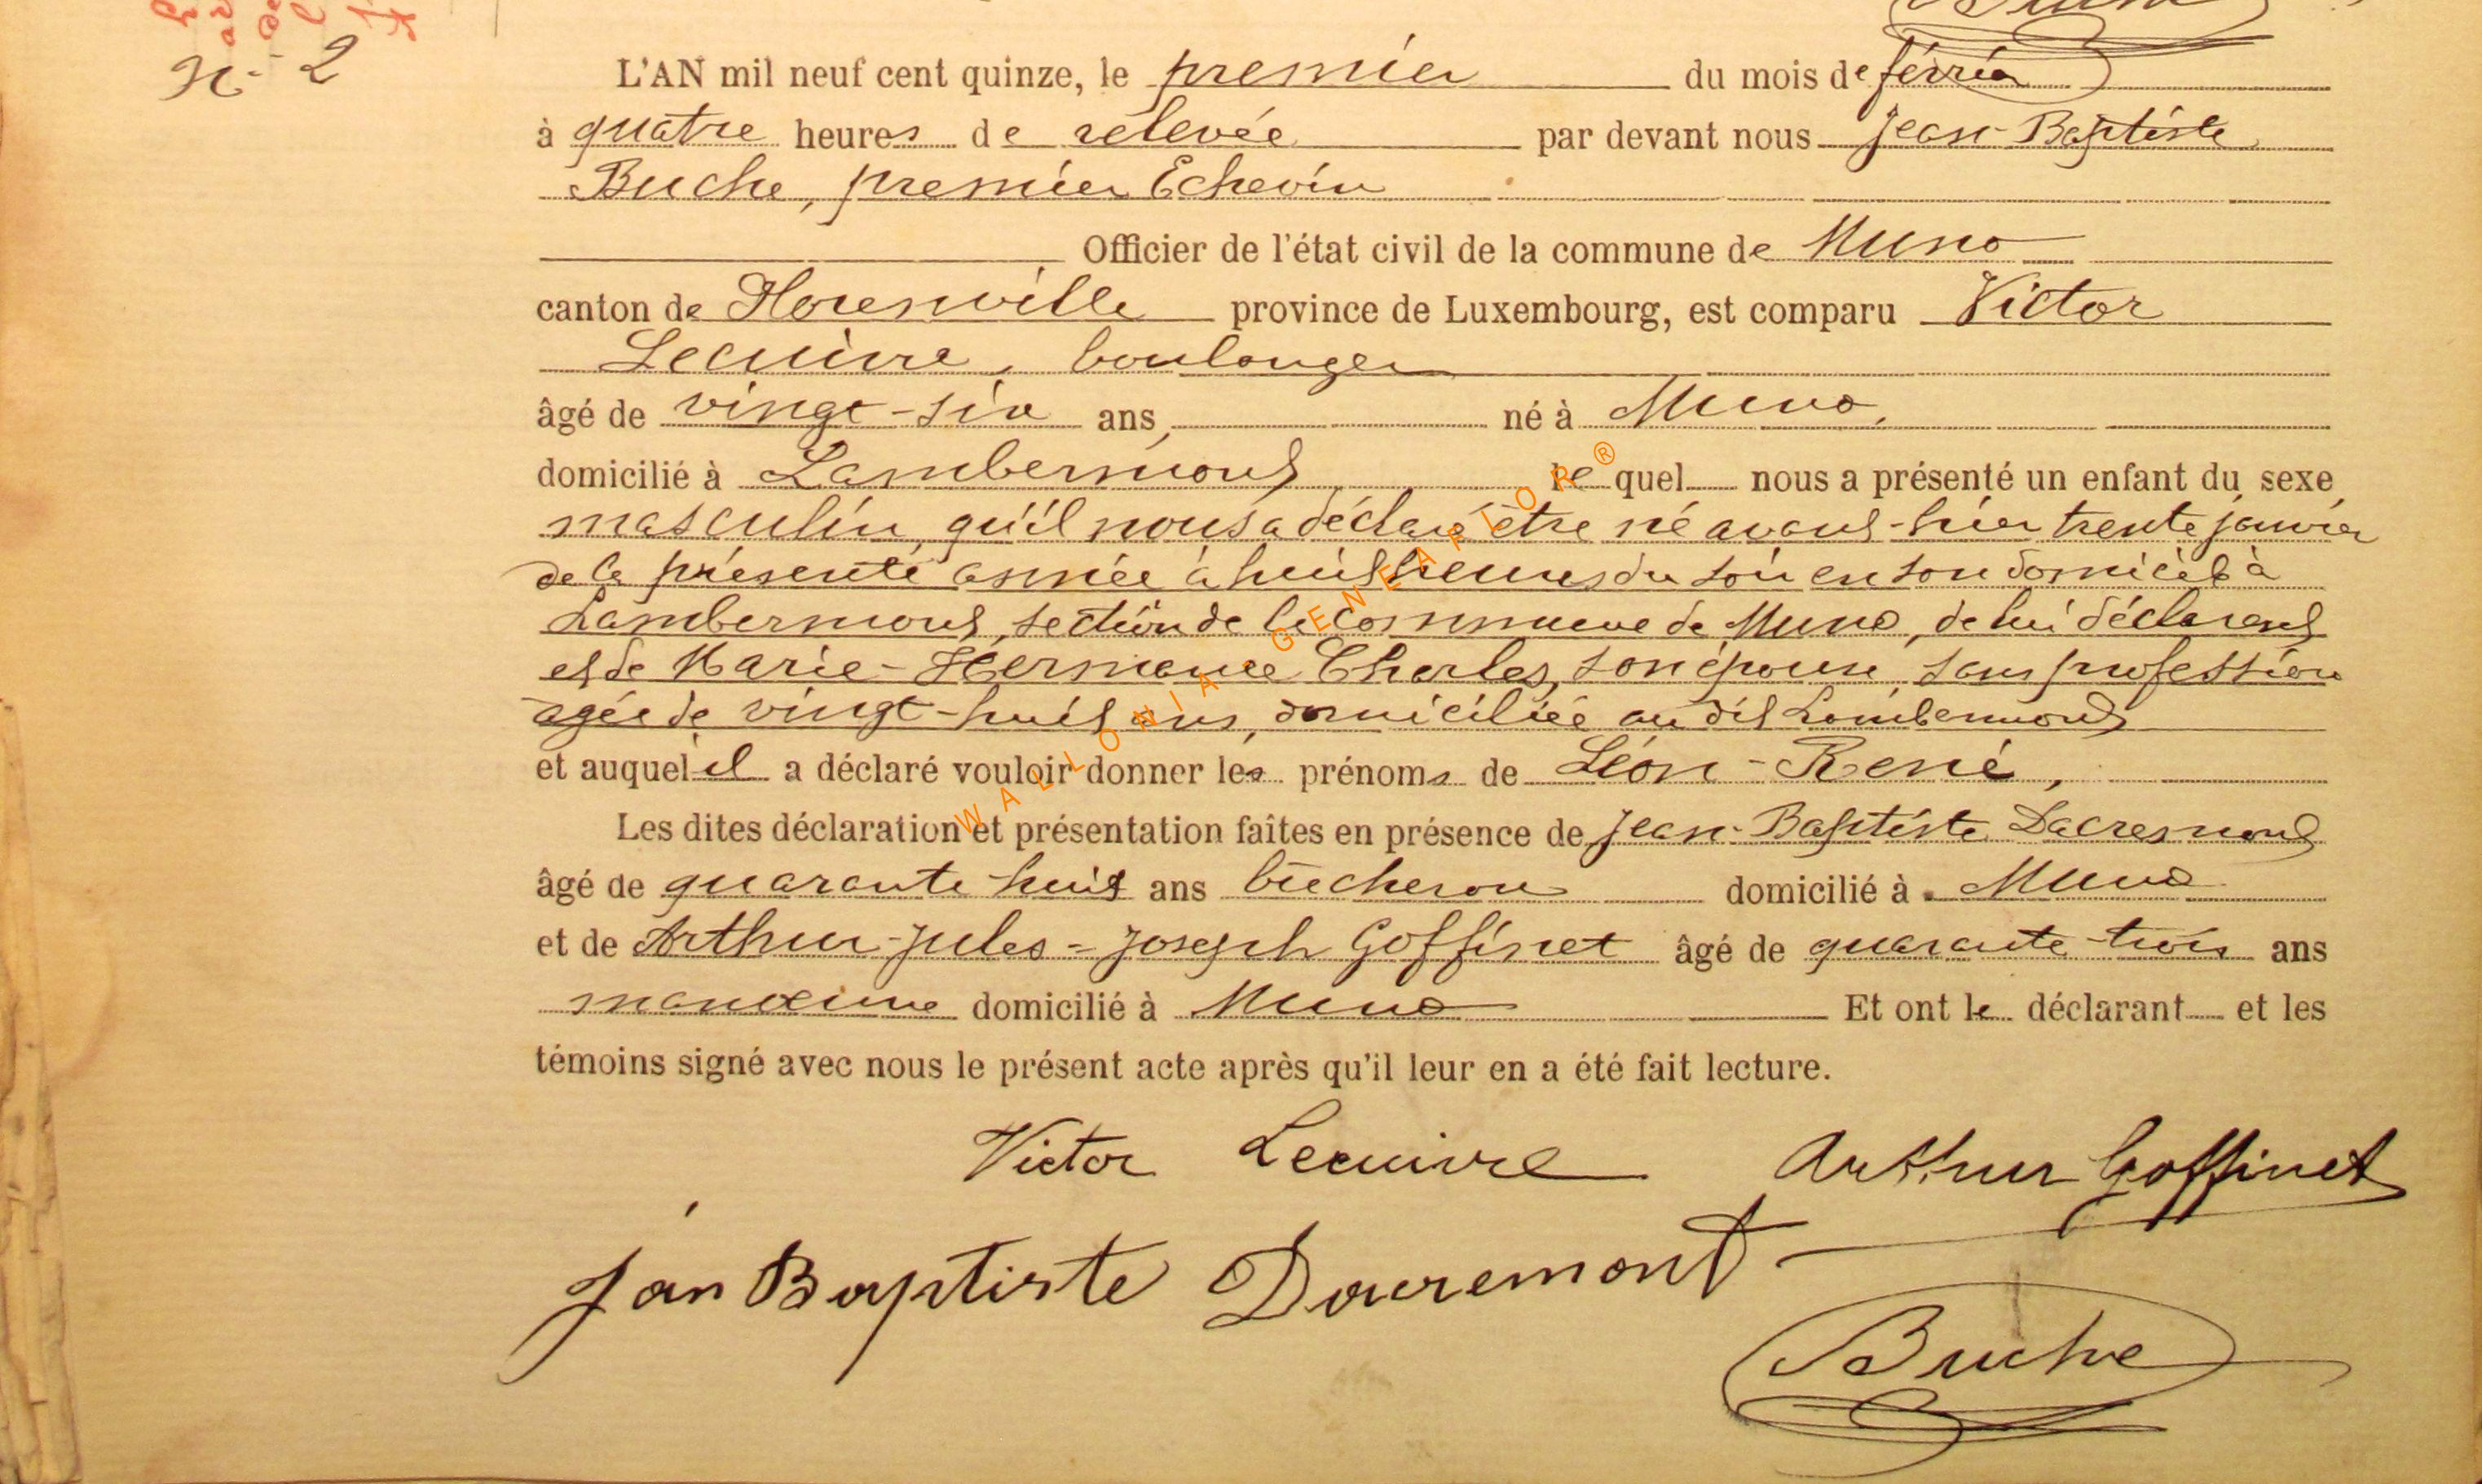 Buche
N° 2
L'AN mil neuf cent quinze, le premier du mois de février
à quatre heures de relevée par devant nous Jean-Baptiste
Buche, premier Echevin
Officier de l'état civil de la commune de Muno
canton de Florenville province de Luxembourg, est comparu Victor
Lecuivre, boulanger
âgé de vingt-six ans, né à Muno,
domicilié à Lambermont lequel nous a présenté un enfant du sexe
masculin, qu'il nous a déclaré être né avant-hier trente janvier
de la présente année à huit heures du soir en son domicile à
Lambermont, section de la commune de Muno, de lui déclarant
et de Marie-Hermance Charles, son épouse, sans profession
agée de vingt-huit ans, domiciliée au dit Lambermont
et auquel il a déclaré vouloir donner les prénoms de Léon-René,
Les dites déclaration et présentation faîtes en présence de Jean-Baptiste Dacremont
âgé de quarante huit ans bûcheron domicilié à Muno
et de Arthur-Jules-Joseph Goffinet âgé de quarante-trois ans
manœuvre domicilié à Muno Et ont le déclarant et les
témoins signé avec nous le présent acte après qu'il leur en a été fait lecture.
Victor Lecuivre Arthur Goffinet
Jan Baptiste Dacremont
Buche
WALLONIA GENEAFLOR ®